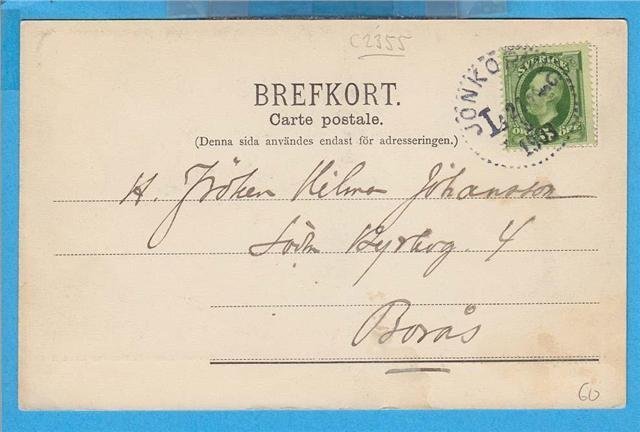 C2355
BREFKORT.
Carte postale.
(Denna sida användes endast för adresseringen.)
JÖNKÖPING
SVERIGE
H. Fröken Hilma Johansson
Södra Kyrkog. 4
Borås
60